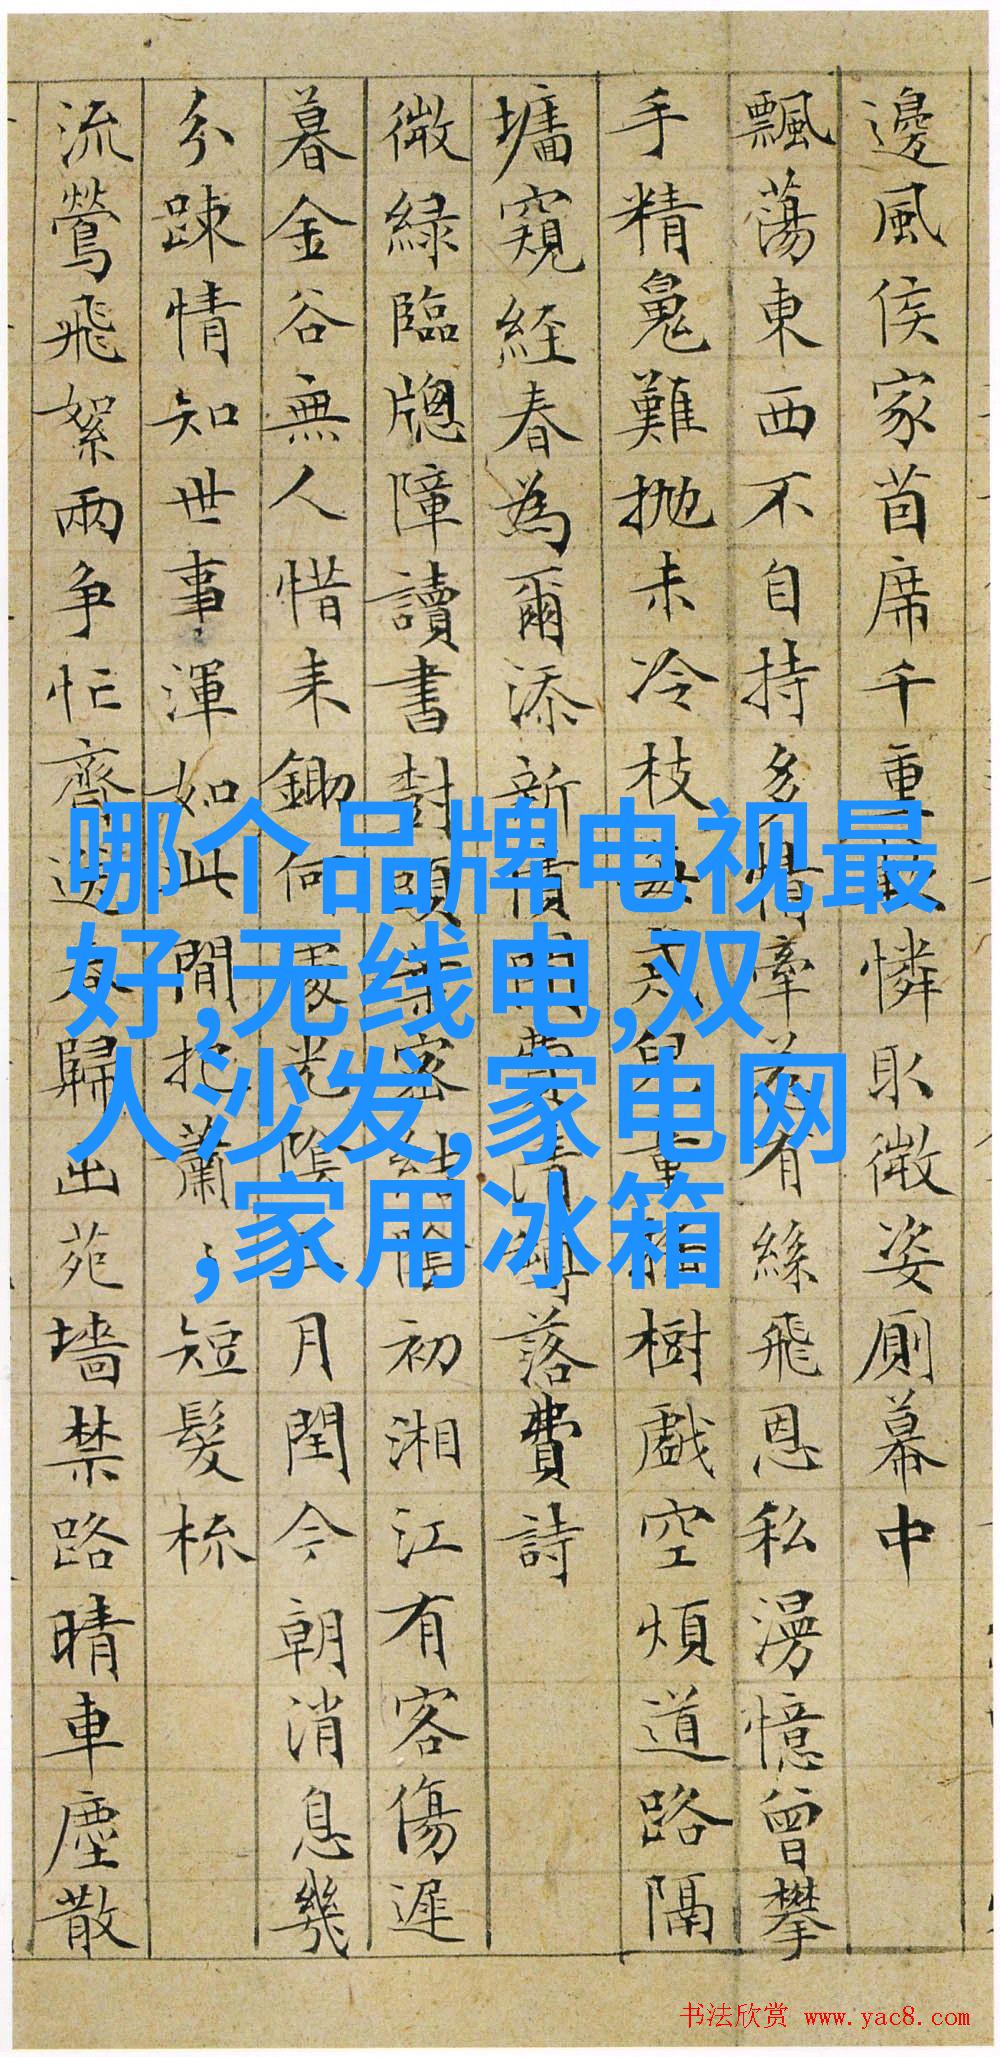 邊風侯家茵席千重憐取微姿廁幕中
飄蕩東西不自持多情牽有絲飛恩私漫憶曾攀
手精魂難拋未冷枝每兒童樹戲空煩道路隔
墉窺經春為爾添新債清落費詩
微綠臨牕障讀書封密結陰初湘江有客傷遲
暮金谷無人惜耒鋤何處光陰月閏今朝消息幾
分疎情知世事渾如此閒把蕭〻短髮梳
流鶯飛絮兩爭忙齊送春歸出苑墻禁路晴車塵散
哪个品牌电视最
好,无线电,双
人沙发,家电网
,家用冰箱
书法欣赏 www.yac8.com